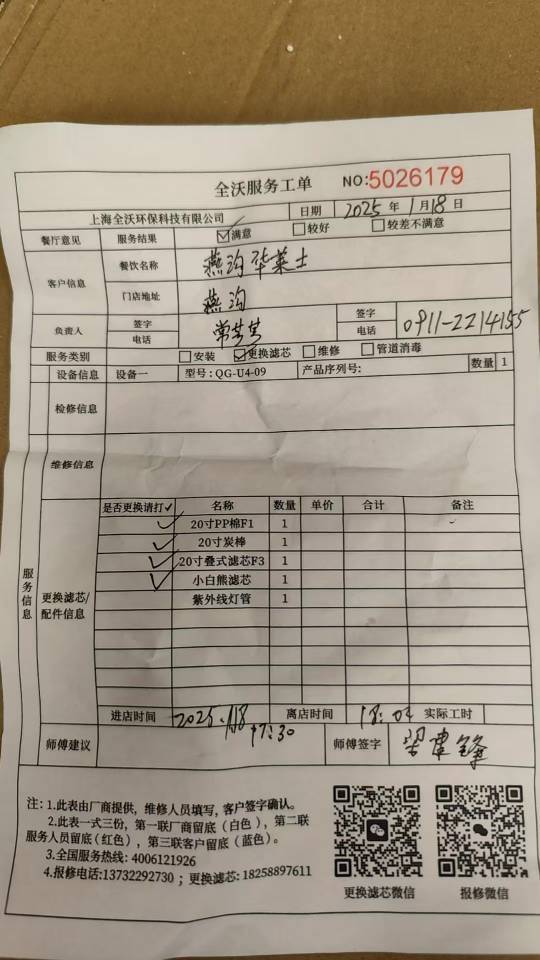 全沃服务工单 NO:5026179
上海全沃环保科技有限公司 日期 2025年1月18日
餐厅意见 服务结果 ☑满意 □较好 □较差不满意
客户信息 餐饮名称 燕沟华莱士
门店地址 燕沟
负责人 签字 电话 常芝芝 签字 电话 0911-2214155
服务类别 □安装 ☑更换滤芯 □维修 □管道消毒
设备信息 设备一 型号:QG-U4-09 产品序列号: 数量 1
检修信息
维修信息
服务信息
更换滤芯/配件信息
是否更换请打✓ 名称 数量 单价 合计 备注
✓ 20寸PP棉F1 1
✓ 20寸炭棒 1
✓ 20寸叠式滤芯F3 1
✓ 小白熊滤芯 1
紫外线灯管 1
进店时间 2025.1.18 17:30 离店时间 18:04 实际工时
师傅建议 师傅签字 梁建锋
注:1.此表由厂商提供,维修人员填写,客户签字确认。
2.此表一式三份,第一联厂商留底(白色),第二联
服务人员留底(红色),第三联客户留底(蓝色)。
3.全国服务热线:4006121926
4.报修电话:13732292730;更换滤芯:18258897611
更换滤芯微信 报修微信